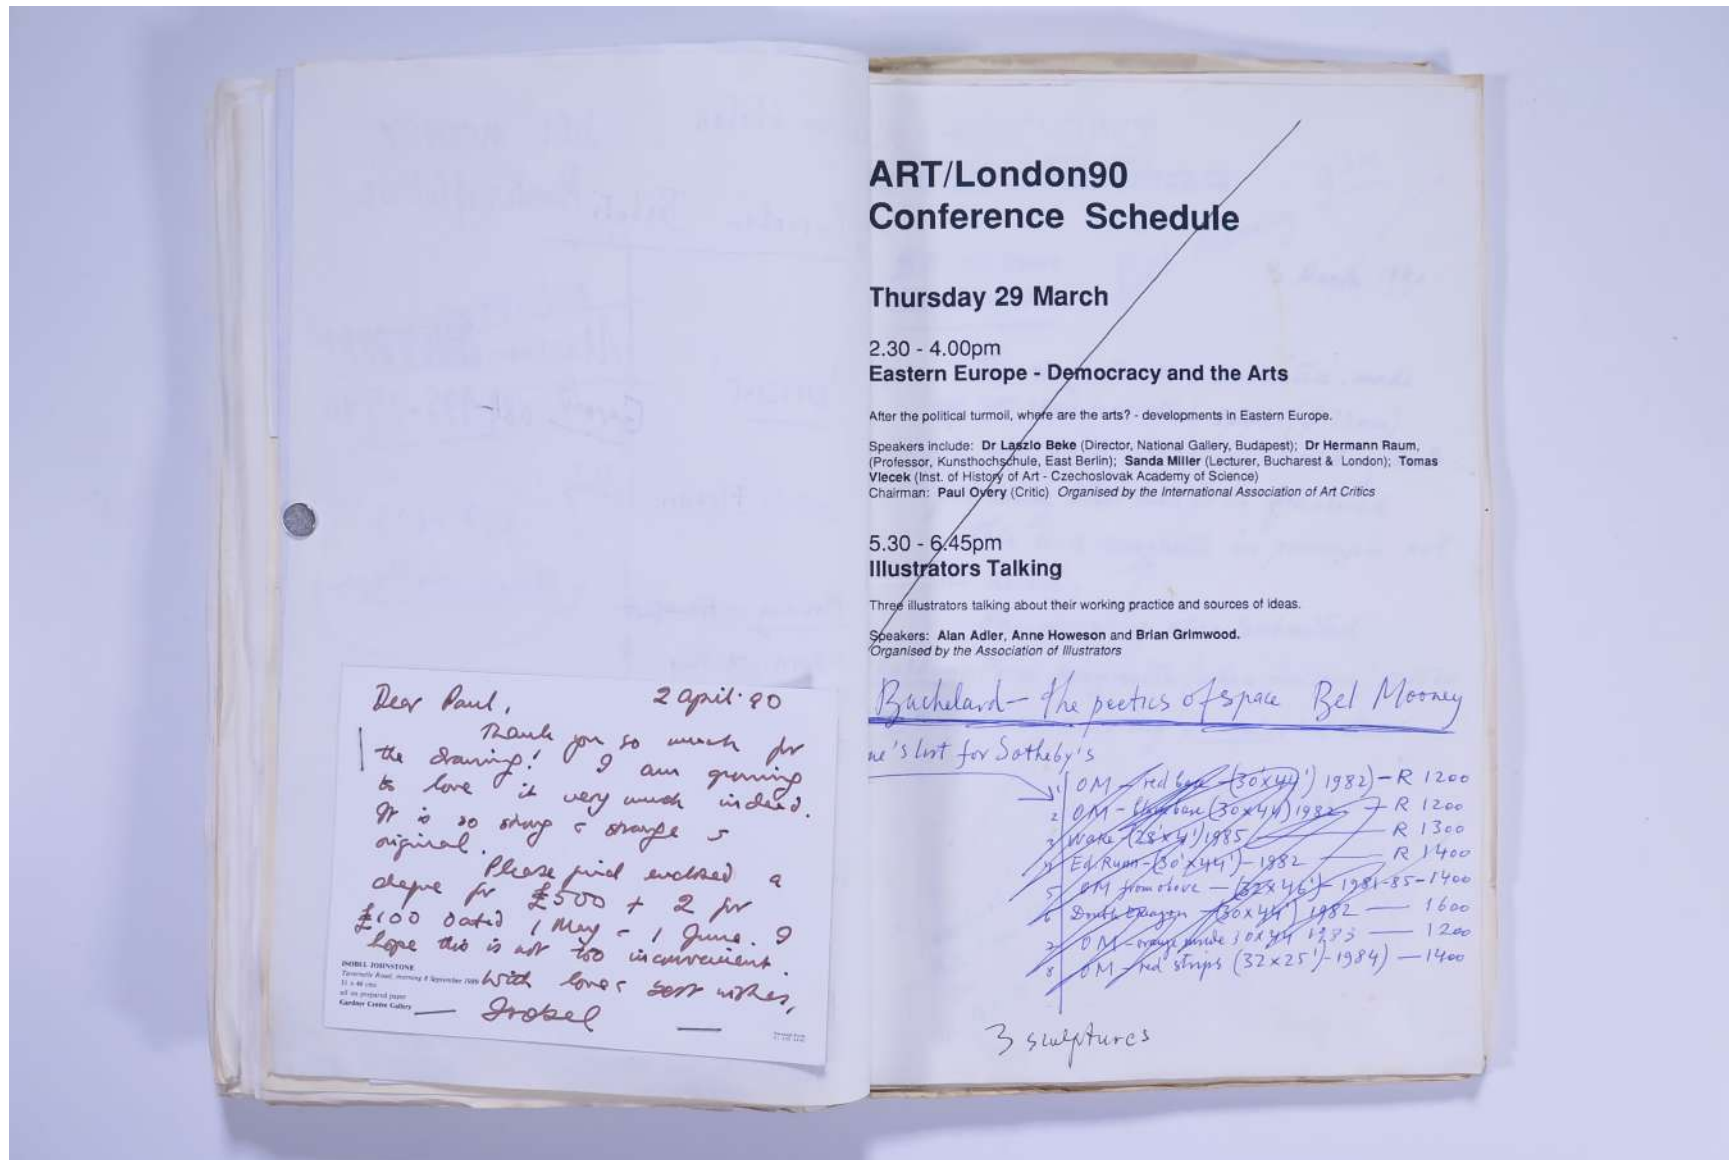 Dear Paul, 2 April 90
Thank you so much for
the drawing! I am growing
to love it very much indeed.
It is so strong & strange &
original.
Please find enclosed a
cheque for £500 + 2 for
£100 dated 1 May & 1 June. I
hope this is not too inconvenient.
With love & best wishes,
Isobel
ISOBEL JOHNSTONE
Road, morning 8 September 1989
31 x 46 cms
oil on prepared paper
Gardner Centre Gallery
ART/London90
Conference Schedule
Thursday 29 March
2.30 - 4.00pm
Eastern Europe - Democracy and the Arts
After the political turmoil, where are the arts? - developments in Eastern Europe.
Speakers include: Dr Laszlo Beke (Director, National Gallery, Budapest); Dr Hermann Raum,
(Professor, Kunsthochschule, East Berlin); Sanda Miller (Lecturer, Bucharest & London); Tomas
Vlecek (Inst. of History of Art - Czechoslovak Academy of Science)
Chairman: Paul Overy (Critic) Organised by the International Association of Art Critics
5.30 - 6.45pm
Illustrators Talking
Three illustrators talking about their working practice and sources of ideas.
Speakers: Alan Adler, Anne Howeson and Brian Grimwood.
Organised by the Association of Illustrators
Bachelard - the poetics of space Bel Mooney
ne's list for Sotheby's
1 OM - red base - (30'x44') 1982) - R 1200
2 OM - base (30x44) 1982 - R 1200
3 Wake - (28'x41') 1985 - R 1300
4 Ed. Ruan - (30'x44') - 1982 - R 1400
5 OM from above - (32x46') - 1981-85 - 1400
6 Double (30x44') 1982 - 1600
7 OM - orange inside 30x44 1983 - 1200
8 OM - red strips (32x25') - 1984) - 1400
3 sculptures